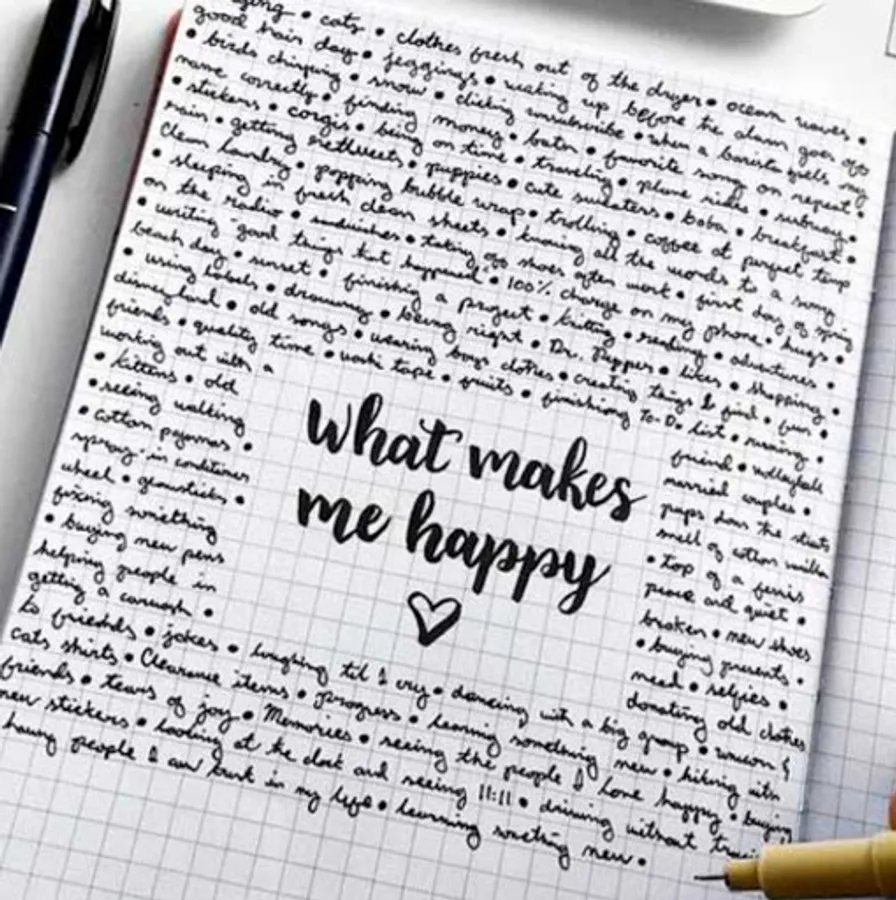 cats • clothes fresh out of the dryer • ocean waves •
good hair day • jeggings • waking up before the alarm goes off
• birds chirping • snow • clicking unsubscribe • when a barista spells my
name correctly • finding money • baths • favorite song on repeat •
• stickers • corgis • being on time • traveling • plane rides • subway •
rain • getting retweets • puppies • cute sweaters • boba • breakfast •
clean laundry • popping bubble wrap • trolling • coffee at perfect temp
• sleeping in fresh clean sheets • knowing all the words to a song
on the radio • sandwiches • taking off shoes after work • first day of spring
• writing "good things that happened" • 100% charge on my phone • hugs •
beach day • sunset • finishing a project • knitting • reading • adventures •
• using labels • drawing • being right • Dr. Pepper • likes • shopping •
disneyland • old songs • wearing boys clothes • creating things I find • fun •
friends • quality time • washi tape • fruits • finishing to-do list • running •
working out with a friend • volleyball
• kittens • old married couples •
• seeing walking pups down the streets
• cotton pajamas • smell of cotton vanilla
spray-in conditioner • top of a ferris
wheel • glowsticks • peace and quiet •
fixing something broken • new shoes
• buying new pens • buying presents •
helping people in need • selfies •
getting a carwash • donating old clothes
What makes
me happy
to friends • jokes • laughing til I cry • dancing with a big group • unicorn &
cats shirts • Clearance items • progress • learning something new • hiking with
friends • tears of joy • Memories • seeing the people I love happy • buying
new stickers • looking at the clock and seeing 11:11 • driving without
having people I can trust in my life • learning something new •